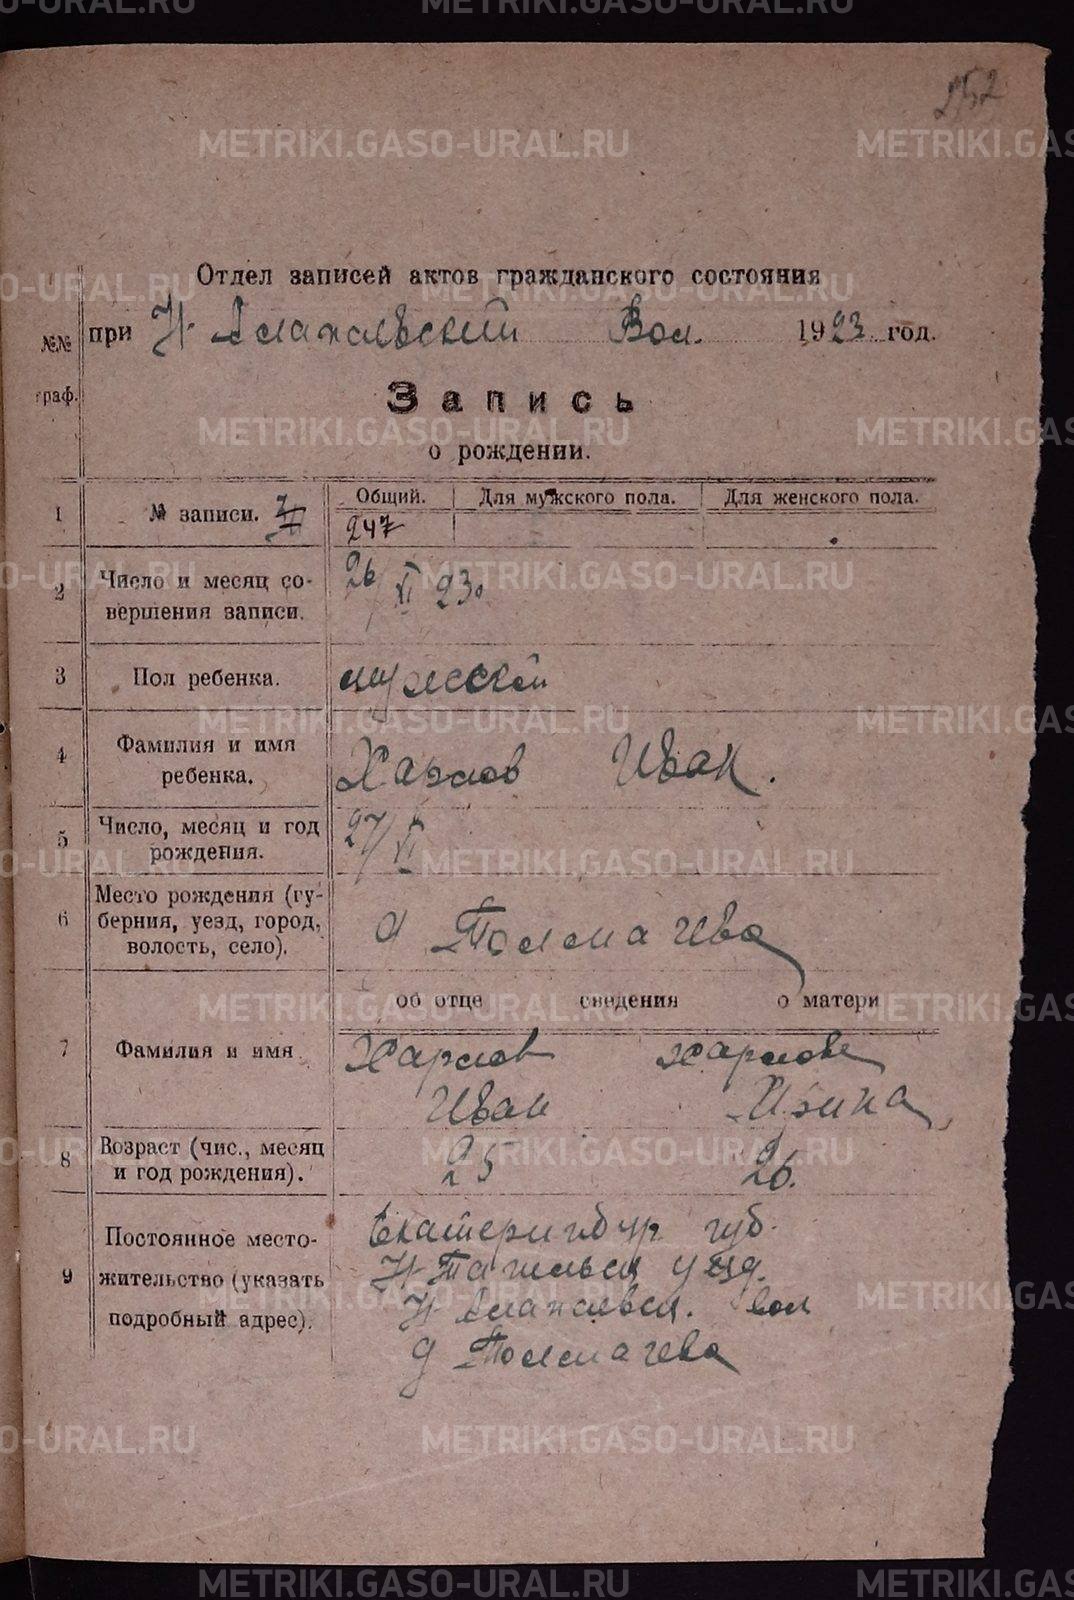 252
Отдел записей актов гражданского состояния
№№ граф.
при Н-Алапаевский Вол. 1923 год.
Запись
о рождении.
1 № записи. Общий. Для мужского пола. Для женского пола.
247
2 Число и месяц со-
вершения записи.
26/XI 23.
3 Пол ребенка. мужской
4 Фамилия и имя
ребенка.
Харлов Иван.
5 Число, месяц и год
рождения.
27/VI
6 Место рождения (гу-
берния, уезд, город,
волость, село).
д Толмачева
об отце сведения о матери
7 Фамилия и имя
Харлов Харлова
Иван Ирина
8 Возраст (чис., месяц
и год рождения).
25 26.
9 Постоянное место-
жительство (указать
подробный адрес).
Екатеринбур губ.
Н-Тагильск уезд.
Н Алапаевск. вол
д Толмачева
METRIKI.GASO-URAL.RU